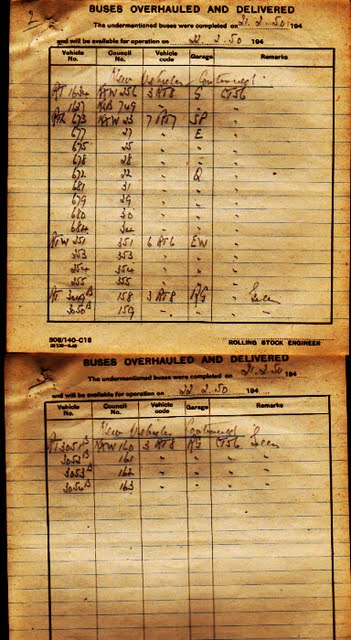 2
BUSES OVERHAULED AND DELIVERED
The undermentioned buses were completed on 21.2.50 194
and will be available for operation on 22.2.50 194
Vehicle No. Council No. Vehicle code Garage Remarks
New Vehicles Continued
RT 1636 256 3 RT8 S CT56
1637 749 " " "
RTL 673 23 7 RT7 SP "
677 27 " E "
675 25 " " "
678 28 " " "
672 22 " Q "
681 31 " " "
679 29 " " "
680 30 " " "
684 34 " " "
RTW 351 351 6 RT6 EW "
353 353 " " "
354 354 " " "
355 355 " " "
RT 3049 B 158 3 RT8 RG " Green
3050 B 159 " " "
306/140-C16
ROLLING STOCK ENGINEER
BUSES OVERHAULED AND DELIVERED
The undermentioned buses were completed on 21.2.50 194
and will be available for operation on 22.2.50 194
Vehicle No. Council No. Vehicle code Garage Remarks
New Vehicles Continued
RT 3051 B 160 3 RT8 RG CT56 Green
3052 B 161 " " " "
3053 B 162 " " " "
3054 B 163 " " " "